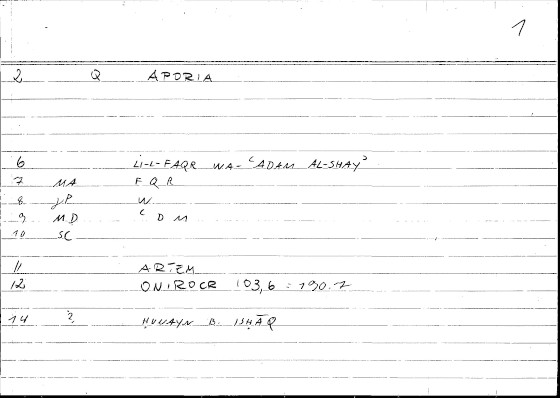 1
2 Q APORIA
6 LI-L-FAQR WA-ʿADAM AL-SHAYʾ
7 MA FQR
8 JP W
9 MD ʿDM
10 SC
11 ARTEM
12 ONIROCR 103,6 : 190.2
14 ? ḤUNAYN B. ISḤĀQ